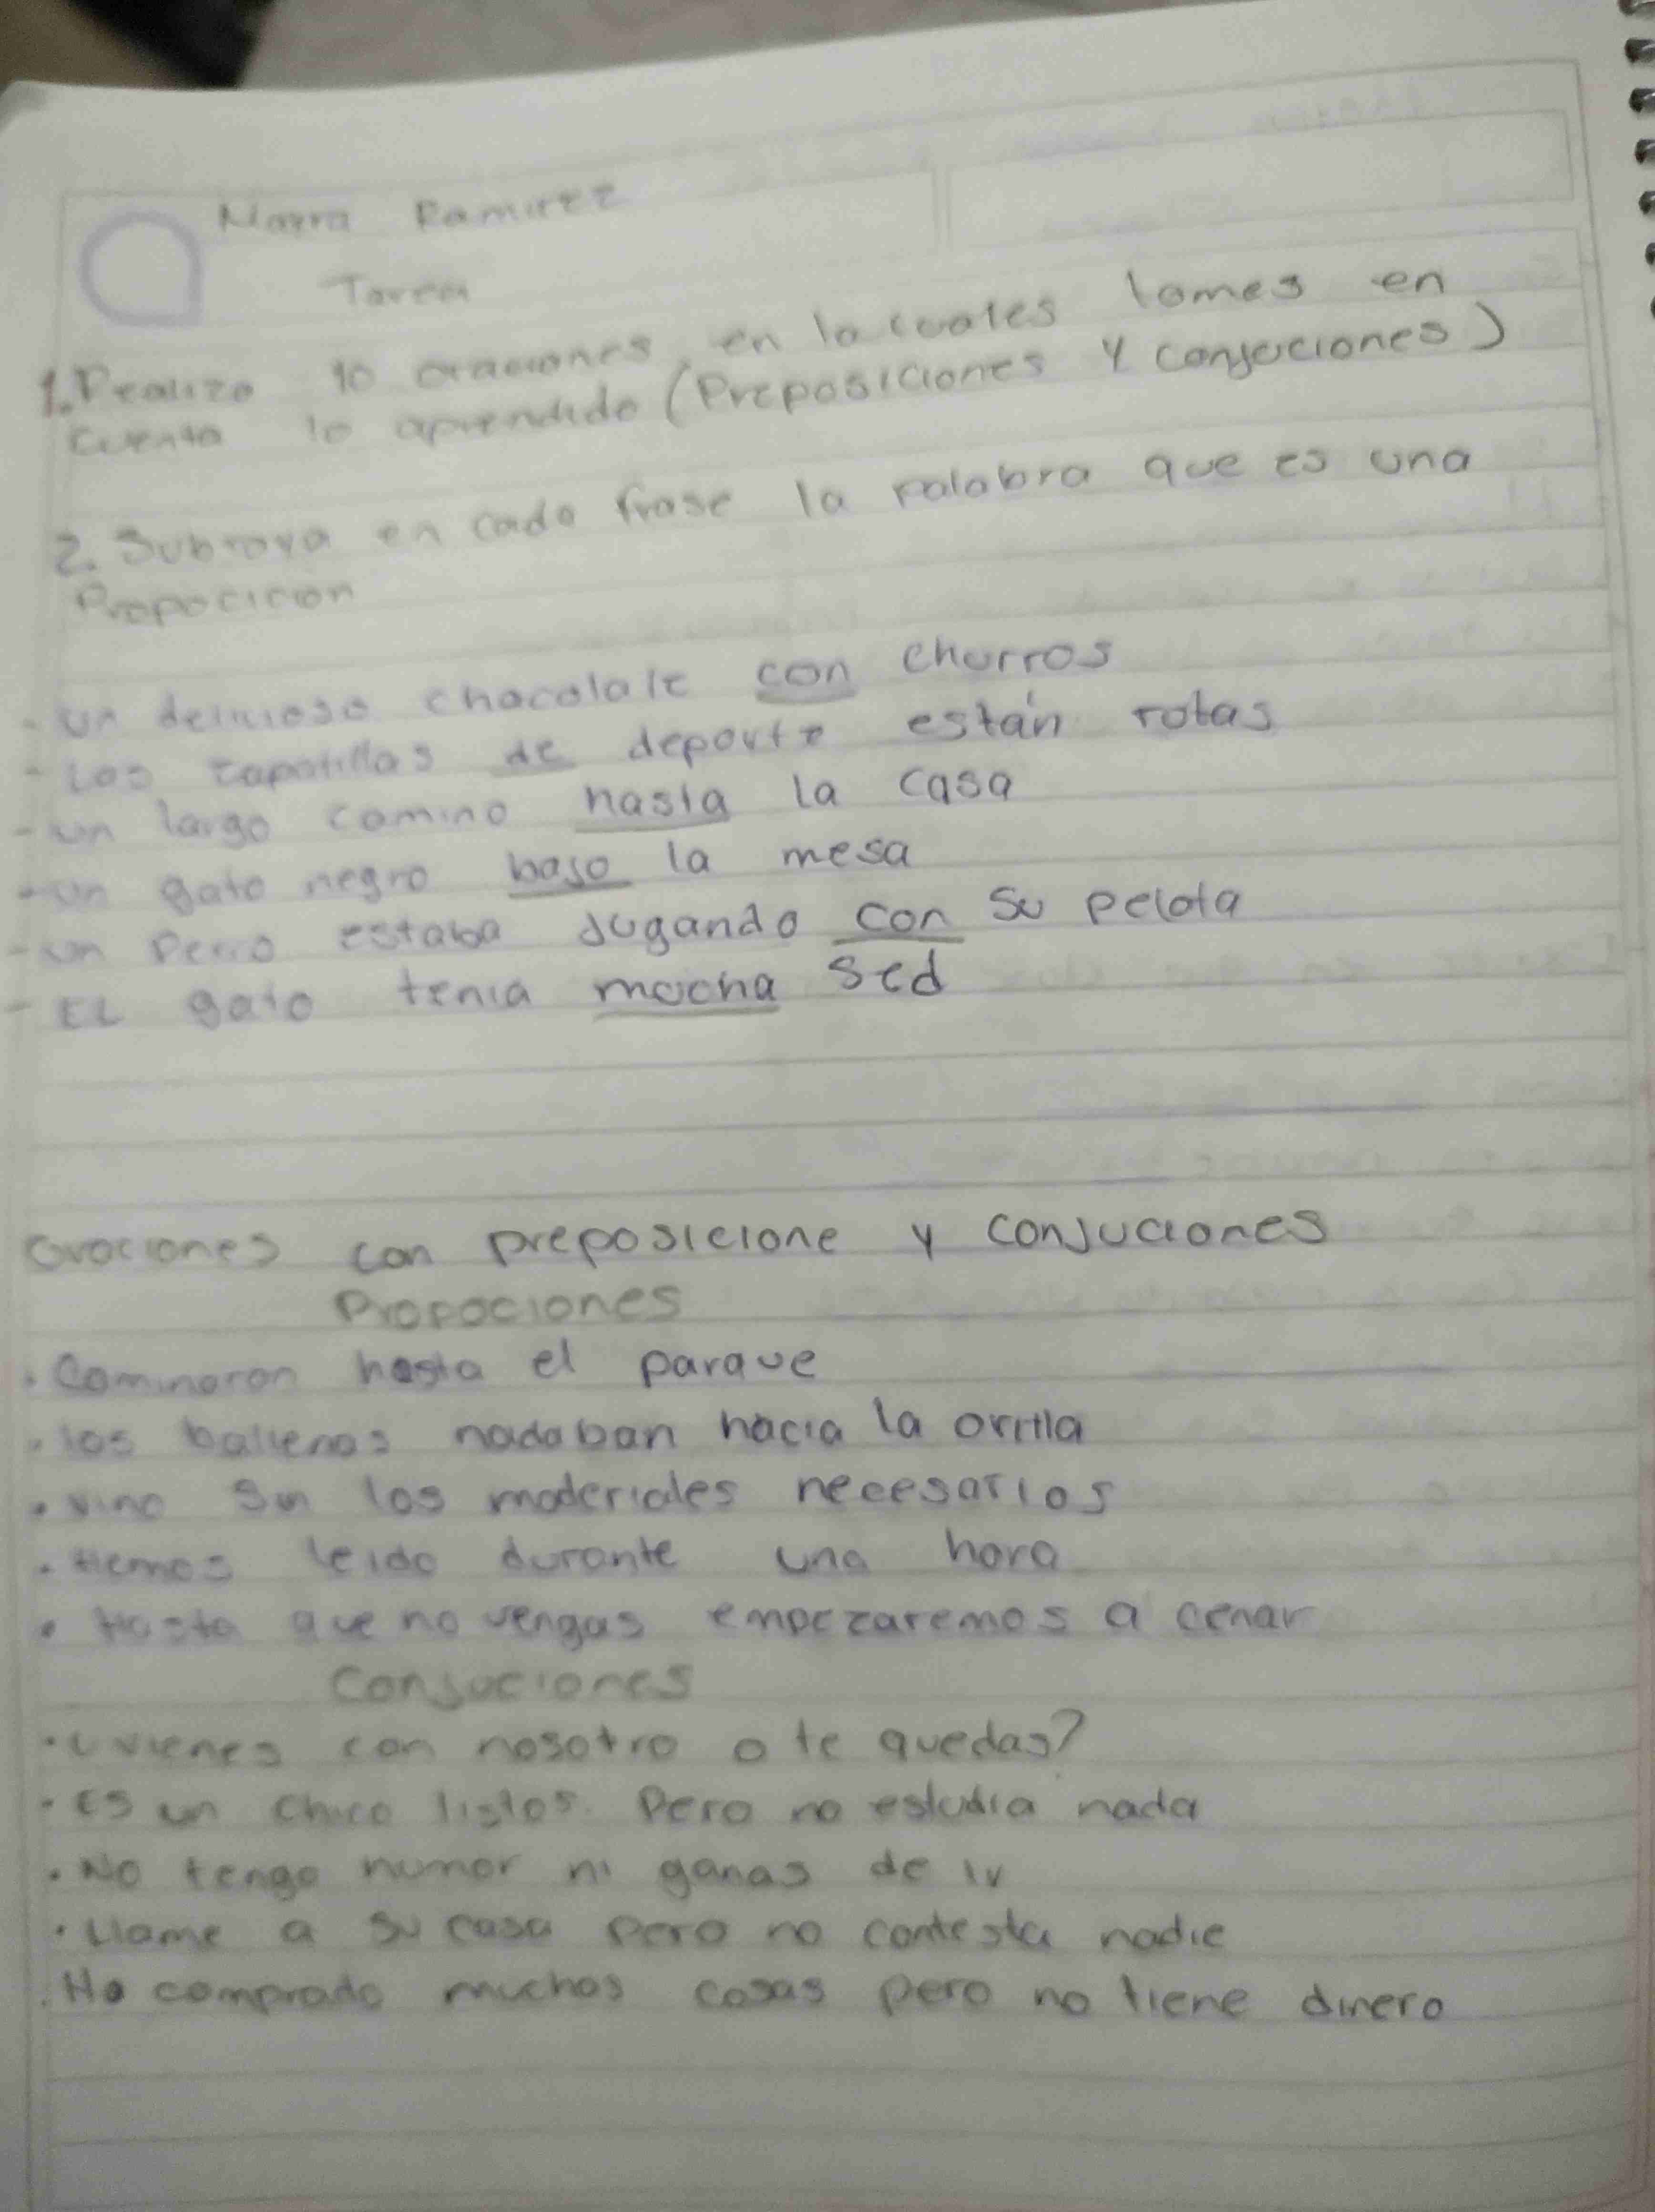 Nayra Ramirez
Tarea
1. Realiza 10 oraciones, en la cuales tomes en
cuenta lo aprendido (Preposiciones y conjuciones)
2. Subraya en cada frase la palabra que es una
Proposicion
- un delicioso chocolate con churros
- Las zapatillas de deporte están rotas
- un largo camino hasta la casa
- un gato negro bajo la mesa
- un perro estaba Jugando con su pelota
- EL gato tenia mucha sed
Oraciones con preposicione y conjuciones
Propociones
. Caminaron hasta el parque
. las ballenas nadaban hacia la orilla
. vino sin los materiales necesarios
. Hemos leido durante una hora
. Hasta que no vengas empezaremos a cenar
Conjuciones
. ¿vienes con nosotro o te quedas?
. Es un chico listos. Pero no estudia nada
. No tengo humor ni ganas de ir
. Llame a su casa pero no contesta nadie
. Ha comprado muchas cosas pero no tiene dinero